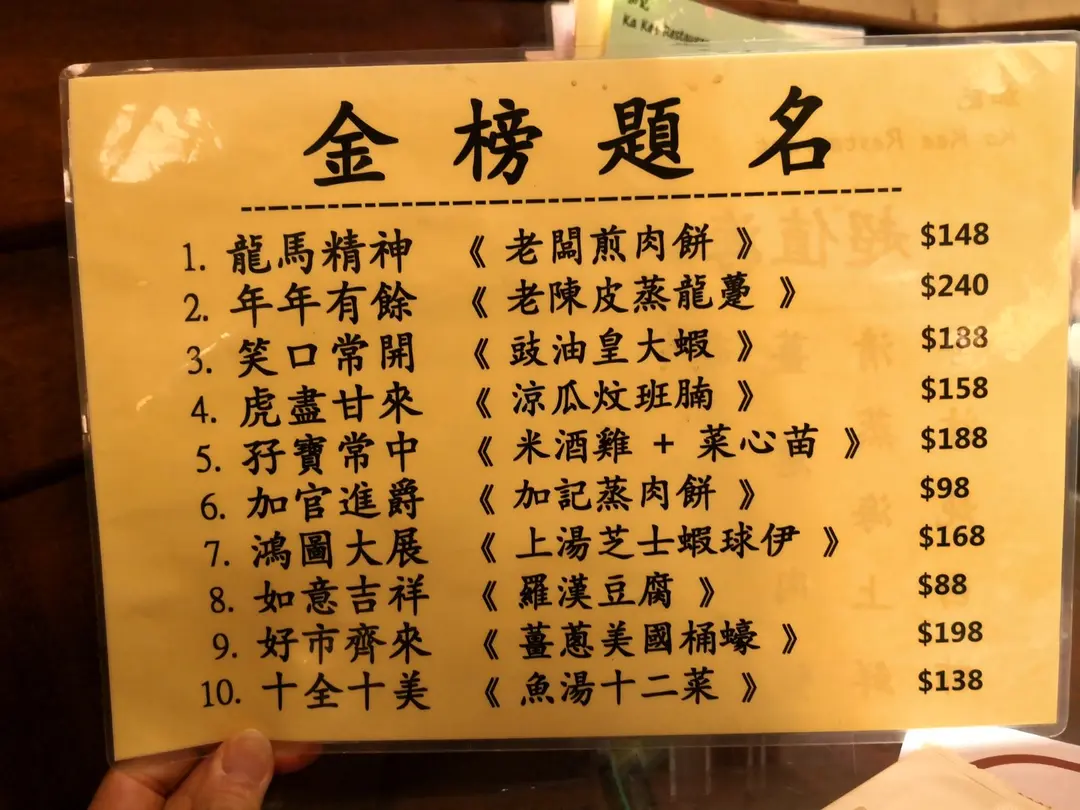 Ka Kee Restaurant
金榜題名
1. 龍馬精神 《 老闆煎肉餅 》 $148
2. 年年有餘 《 老陳皮蒸龍躉 》 $240
3. 笑口常開 《 豉油皇大蝦 》 $188
4. 虎盡甘來 《 涼瓜炆班腩 》 $158
5. 孖寶常中 《 米酒雞 + 菜心苗 》 $188
6. 加官進爵 《 加記蒸肉餅 》 $98
7. 鴻圖大展 《 上湯芝士蝦球伊 》 $168
8. 如意吉祥 《 羅漢豆腐 》 $88
9. 好市齊來 《 薑蔥美國桶蠔 》 $198
10. 十全十美 《 魚湯十二菜 》 $138